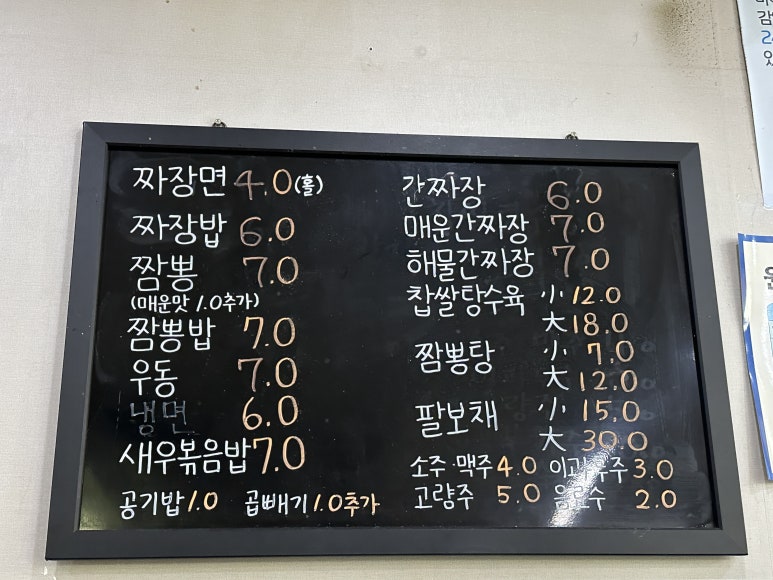 짜장면 4.0(홀)
짜장밥 6.0
짬뽕 7.0
(매운맛 1.0추가)
짬뽕밥 7.0
우동 7.0
냉면 6.0
새우볶음밥 7.0
공기밥 1.0 곱빼기 1.0추가
간짜장 6.0
매운간짜장 7.0
해물간짜장 7.0
찹쌀탕수육 小 12.0
大 18.0
짬뽕탕 小 7.0
大 12.0
팔보채 小 15.0
大 30.0
소주·맥주 4.0 이과두주 3.0
고량주 5.0 음료수 2.0